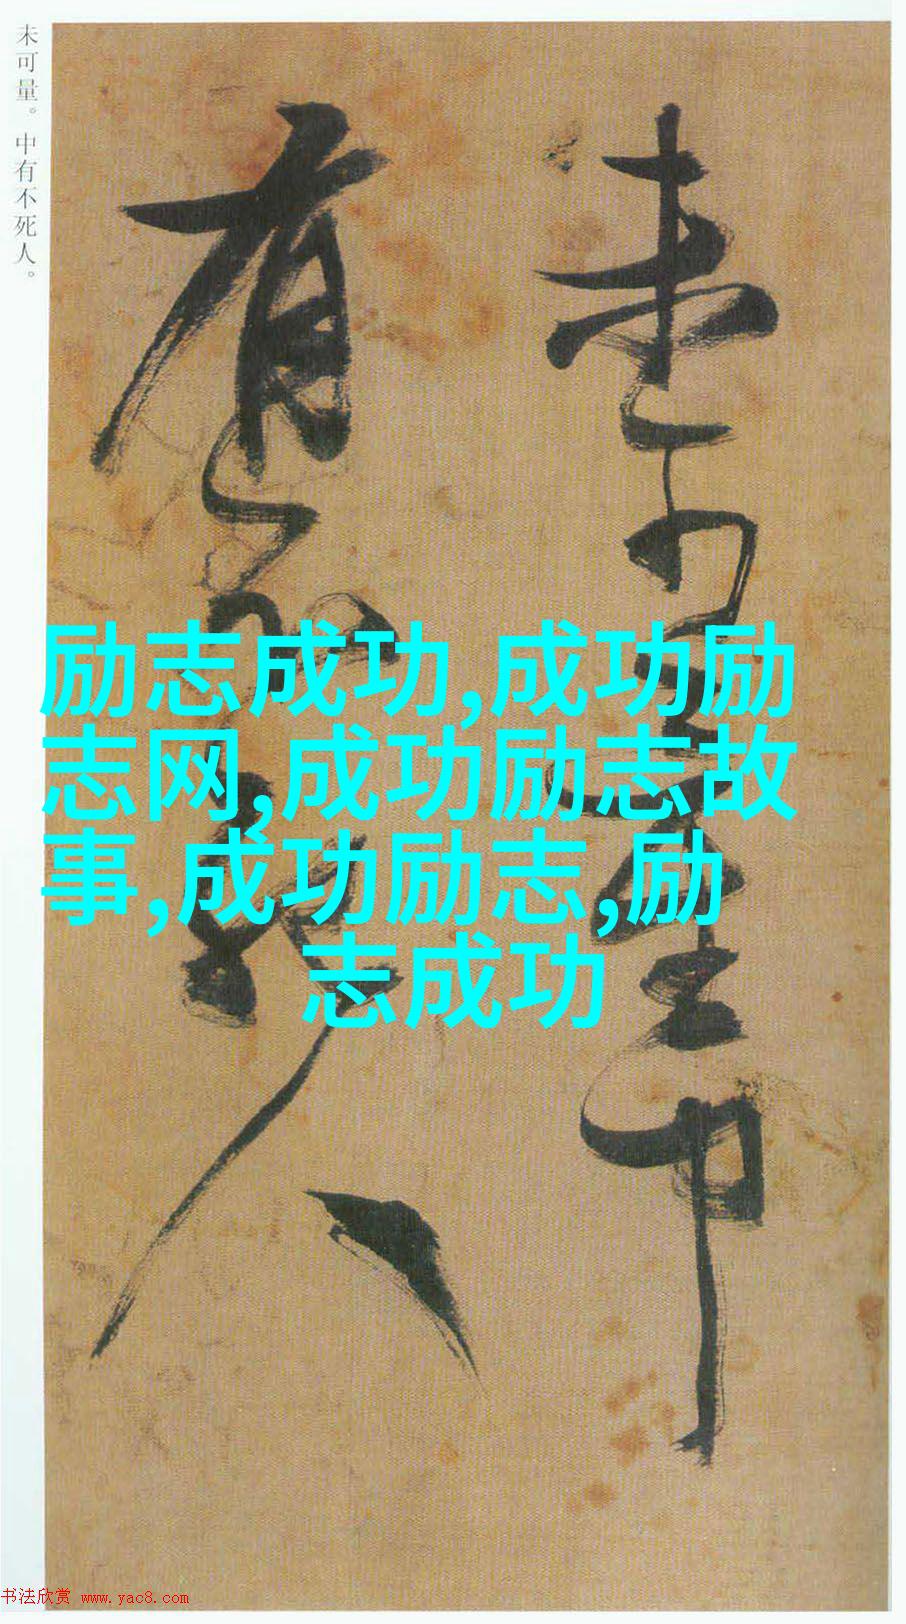 未可量。中有不死人。
未可量中
有不死人
励志成功,成功励
志网,成功励志故
事,成功励志,励
志成功
书法欣赏 www.yac8.com